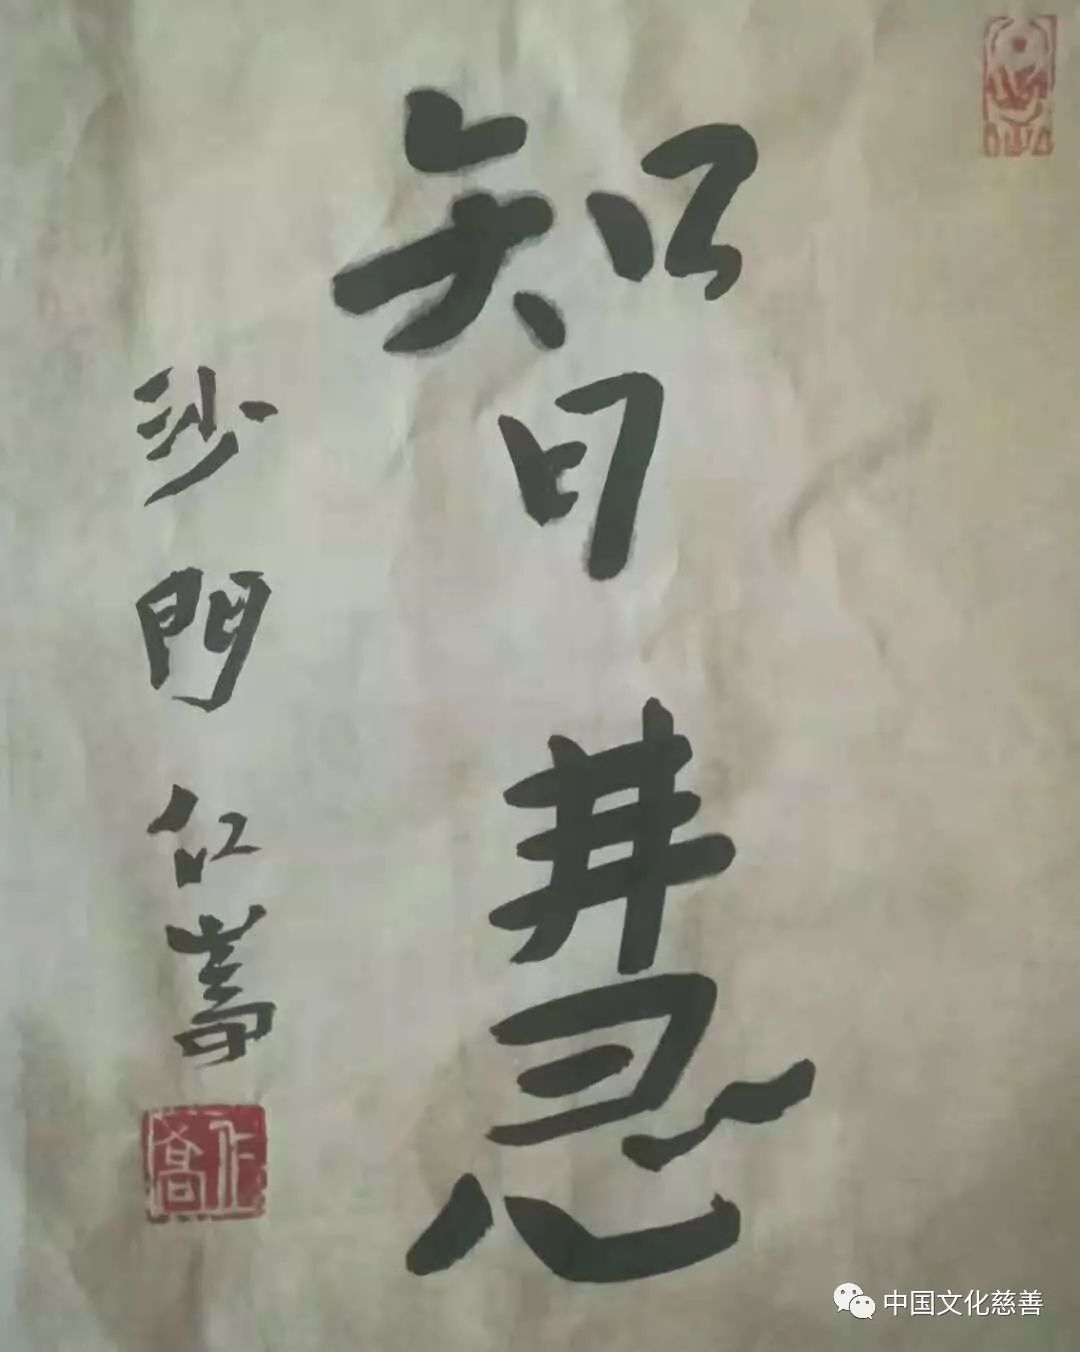 智慧
沙門仁喬
中国文化慈善